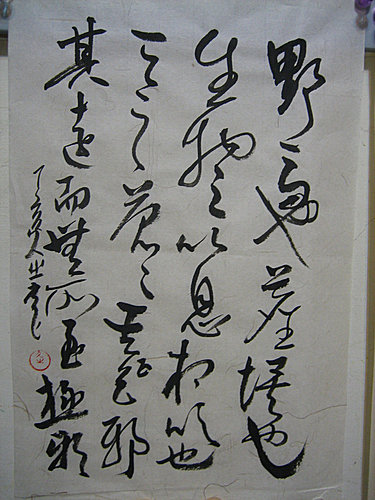 野馬也塵埃也
生物之以息相吹也
天之蒼々其正色邪
其遠而無所至極邪
丁亥